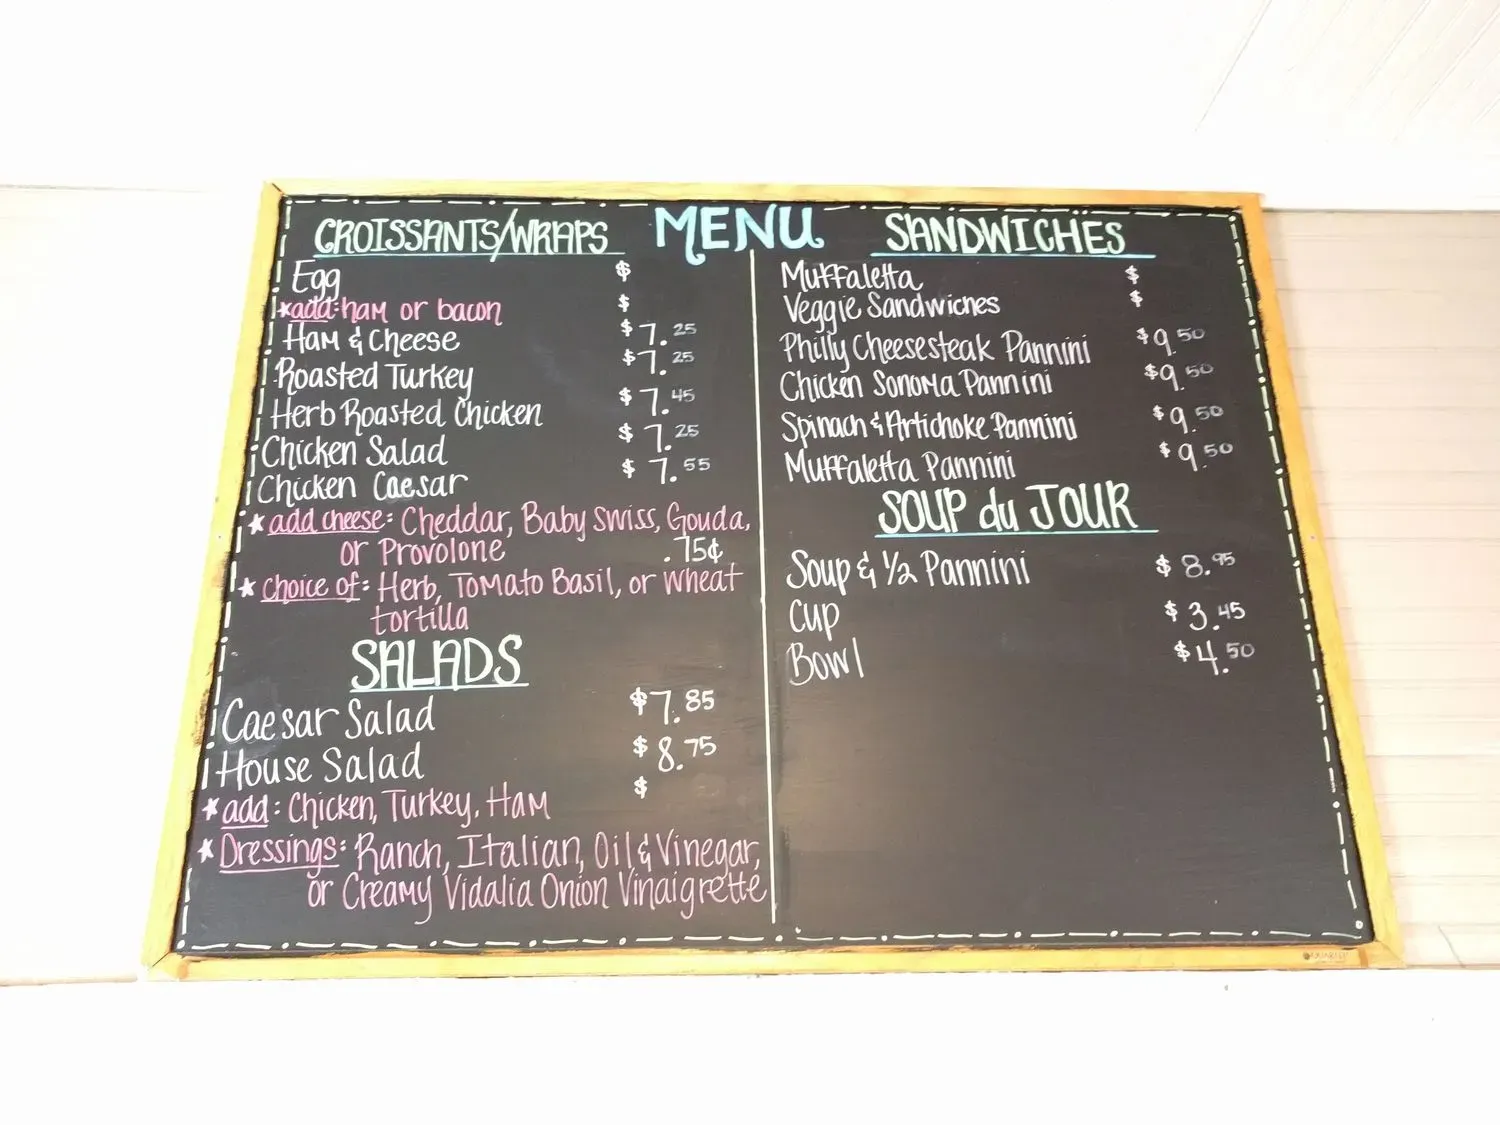 MENU
CROISSANTS/WRAPS
Egg $
*add: ham or bacon $
Ham & Cheese $7.25
Roasted Turkey $7.25
Herb Roasted Chicken $7.45
Chicken Salad $7.25
Chicken Caesar $7.55
*add cheese: Cheddar, Baby Swiss, Gouda,
or Provolone .75¢
*choice of: Herb, Tomato Basil, or wheat
tortilla
SALADS
Caesar Salad $7.85
House Salad $8.75
*add: Chicken, Turkey, Ham $
*Dressings: Ranch, Italian, Oil & Vinegar,
or Creamy Vidalia Onion Vinaigrette
SANDWICHES
Muffaletta $
Veggie Sandwiches $
Philly Cheesesteak Pannini $9.50
Chicken Sonoma Pannini $9.50
Spinach & Artichoke Pannini $9.50
Muffaletta Pannini $9.50
SOUP du JOUR
Soup & 1/2 Pannini $8.95
Cup $3.45
Bowl $4.50